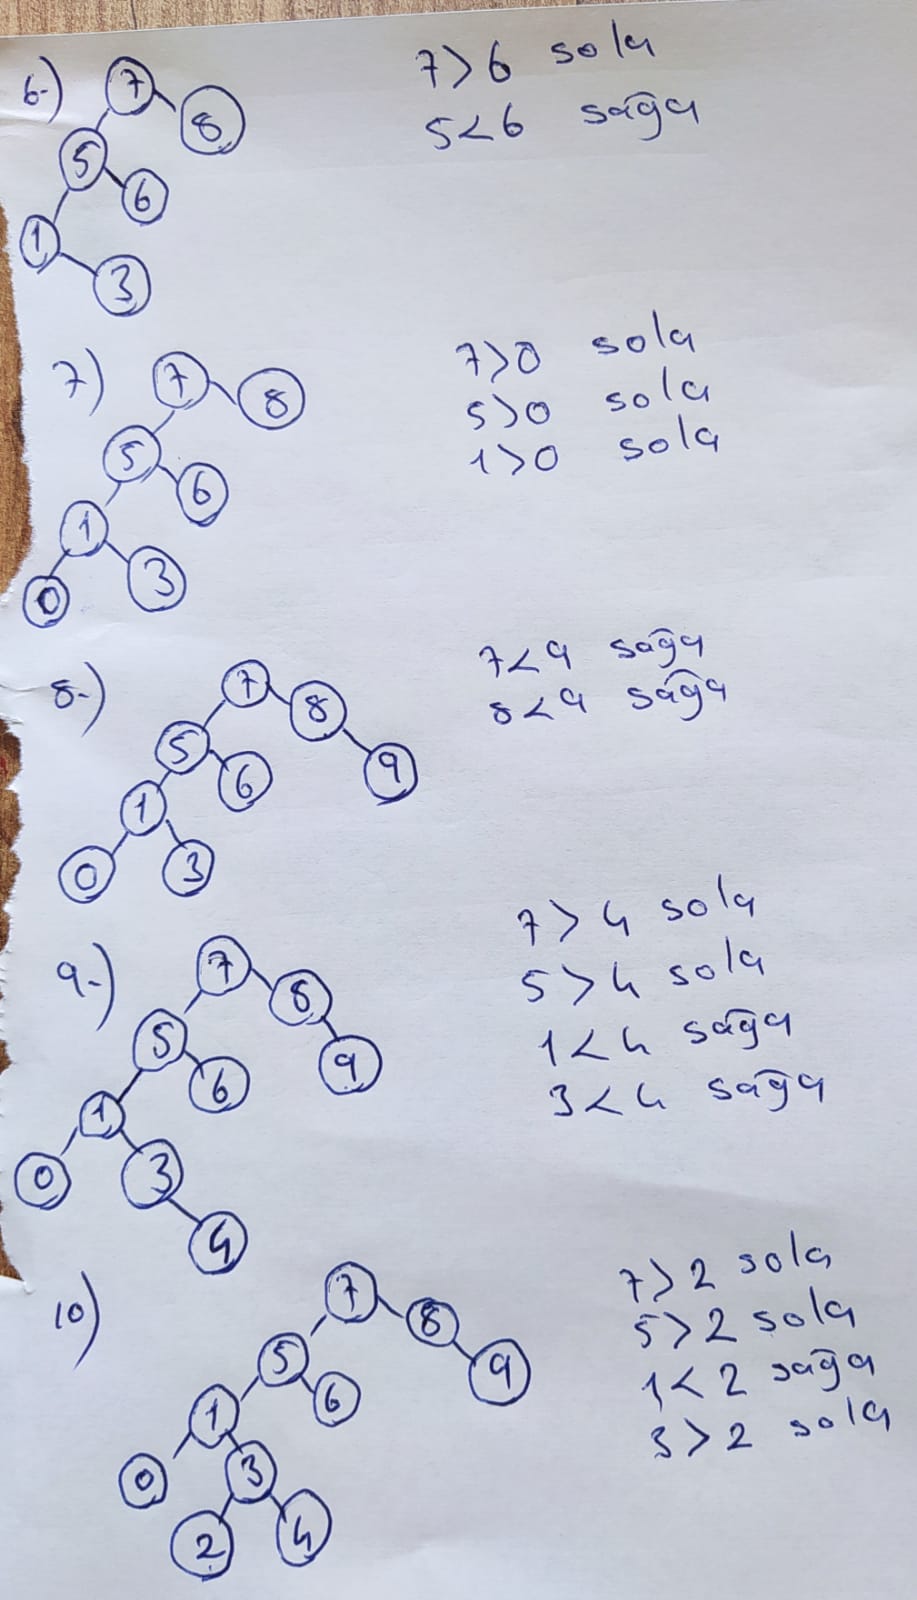 6-)
7
8
5
6
1
3
7>6 sola
5<6 sağa
7)
7
8
5
6
1
3
0
7>0 sola
5>0 sola
1>0 sola
8-)
7
8
5
6
9
1
0
3
7<9 sağa
8<9 sağa
9-)
7
8
5
6
9
1
0
3
4
7>4 sola
5>4 sola
1<4 sağa
3<4 sağa
10)
7
8
5
9
6
1
3
0
2
4
7>2 sola
5>2 sola
1<2 sağa
3>2 sola